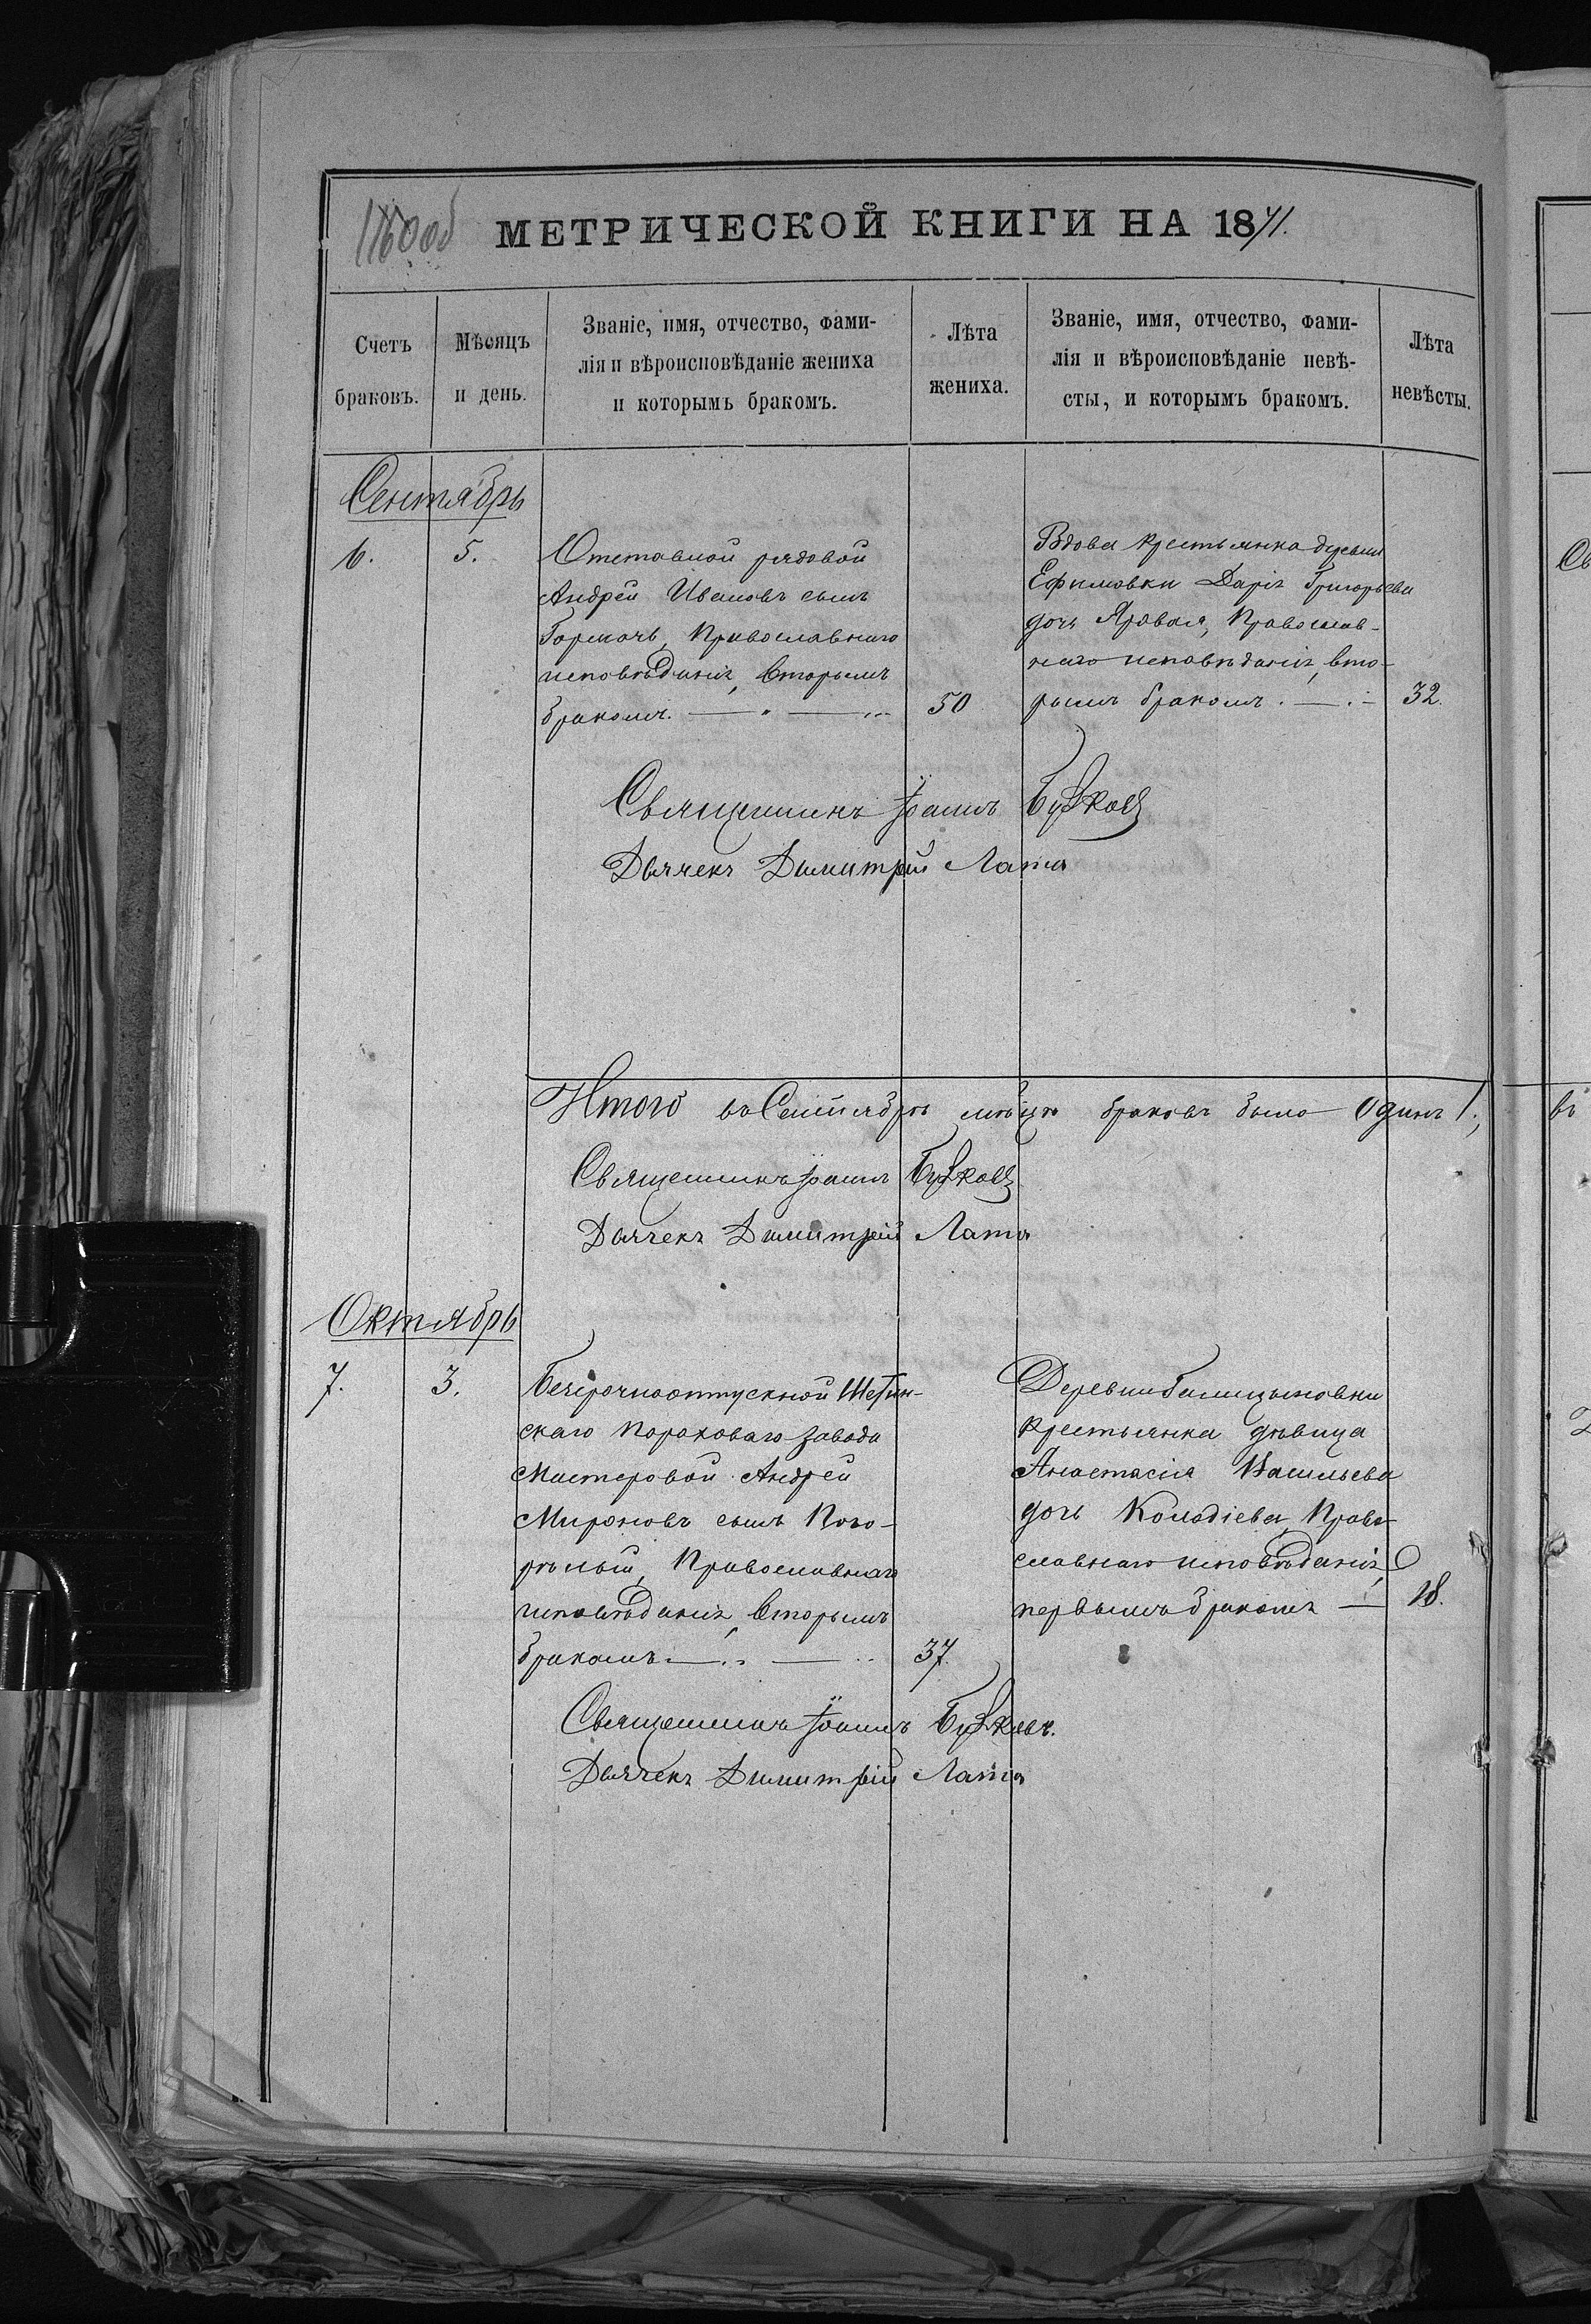 МЕТРИЧЕСКОЙ КНИГИ НА 1871.
Счетъ браковъ.
Мѣсяцъ и день.
Званіе, имя, отчество, фами-
лія и вѣроисповѣданіе жениха
и которымъ бракомъ.
Лѣта жениха.
Званіе, имя, отчество, фами-
лія и вѣроисповѣданіе невѣ-
сты, и которымъ бракомъ.
Лѣта невѣсты.
Сентябрь
6.
5.
Отставной рядовой
Андрей Ивановъ сынъ
Гормачъ, Православнаго
исповѣданія, вторымъ
бракомъ.
50
Вдова крестьянка деревни
Ефимовки Дарія Григорьева
дочь Яровая, Православ-
наго исповѣданія, вто-
рымъ бракомъ.
32.
Священникъ Іоаннъ
Дьячекъ Димитрій Лата
Итого въ Сентябрѣ мѣсяцѣ браковъ было Одинъ 1.
Священникъ Іоаннъ
Дьячекъ Димитрій Лата
Октябрь
7.
3.
Безсрочноотпускной Шостин-
скаго Пороховаго завода
Мастеровой Андрей
Мироновъ сынъ Пого-
рѣлый, Православнаго
исповѣданія, вторымъ
бракомъ
37.
Деревни Голицыновки
крестьянка дѣвица
Анастасія Васильева
дочь Колодіева, Право-
славнаго исповѣданія,
первымъ бракомъ
18.
Священникъ Іоаннъ
Дьячекъ Димитрій Лата